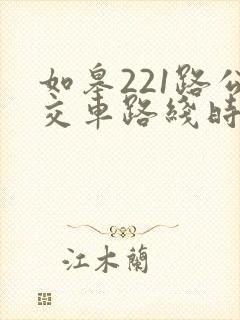 如皋221路公
交車路綫時
江木蘭